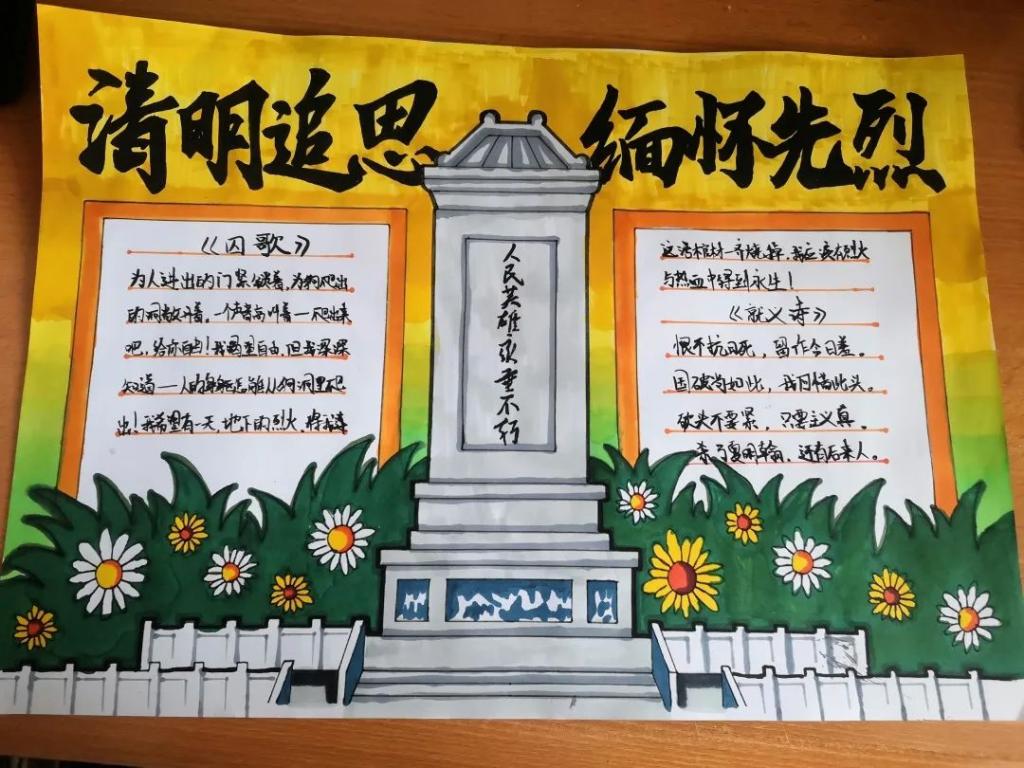 清明追思 缅怀先烈
《囚歌》
为人进出的门紧锁着，为狗爬出
的洞敞开着，一个声音高叫着—爬出来
吧，给你自由！我渴望自由，但我深深
知道——人的身躯怎能从狗洞里爬
出！我希望有一天，地下的烈火，将我连
人民英雄永垂不朽
这活棺材一齐烧掉，我应该在烈火
与热血中得到永生！
《就义诗》
恨不抗日死，留作今日羞。
国破尚如此，我何惜此头。
砍头不要紧，只要主义真。
杀了夏明翰，还有后来人。